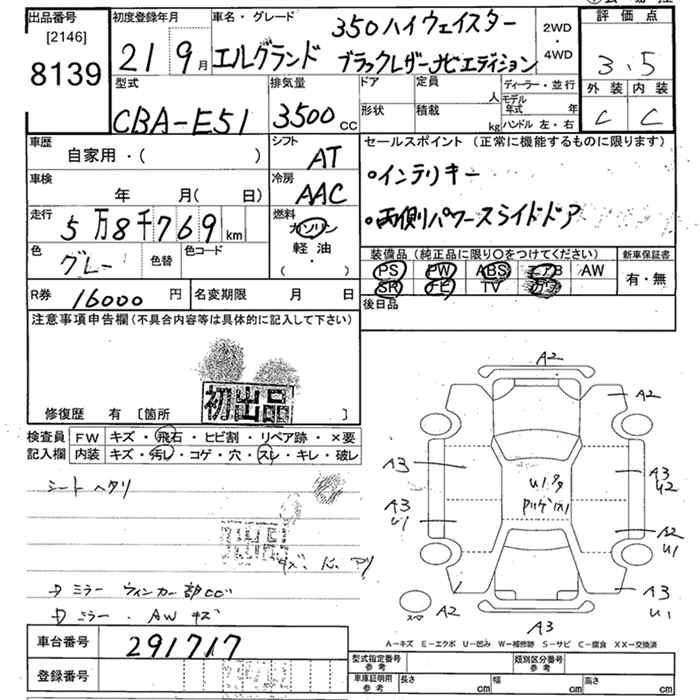 出品番号
[2146]
8139
初度登録年月
21 9月
車名・グレード
350ハイウェイスター
エルグランド ブラックレザーナビエディション
2WD
・
4WD
評価点
3.5
外装 内装
C C
型式
CBA-E51
排気量
3500cc
ドア
定員
人
形状
積載
kg
ディーラー・並行
モデル年式 年
ハンドル 左・右
車歴
自家用・( )
シフト
AT
車検
年 月( 日)
冷房
AAC
走行
5万8千769km
燃料
ガソリン
軽油・
( )
色
グレー
色替
色コード
セールスポイント (正常に機能するものに限ります)
・インテリキー
・両側パワースライドドア
装備品 (純正品に限り○をつけてください)
新車保証書
PS PW ABS エアB AW
SR ナビ TV カワ
有・無
後日品
R券 16000円
名変期限 月 日
注意事項申告欄(不具合内容等は具体的に記入して下さい)
初出品
修復歴 有 [箇所 ]
検査員記入欄
FW キズ・飛石・ヒビ割・リペア跡・×要
内装 キズ・汚レ・コゲ・穴・スレ・キレ・破レ
シートヘタリ
ミラー ウィンカー部
ミラー・AWキズ
車台番号
291717
登録番号
A2
A2
A3
A3
U2
A3
U1
A2
U1
A3
U1
A2
A3
A-キズ E-エクボ U-凹み W-補修跡 S-サビ C-腐食 XX-交換済
型式指定番号 参考
類別区分番号 参考
車庫証明用 参考
長さ cm
幅 cm
高さ cm